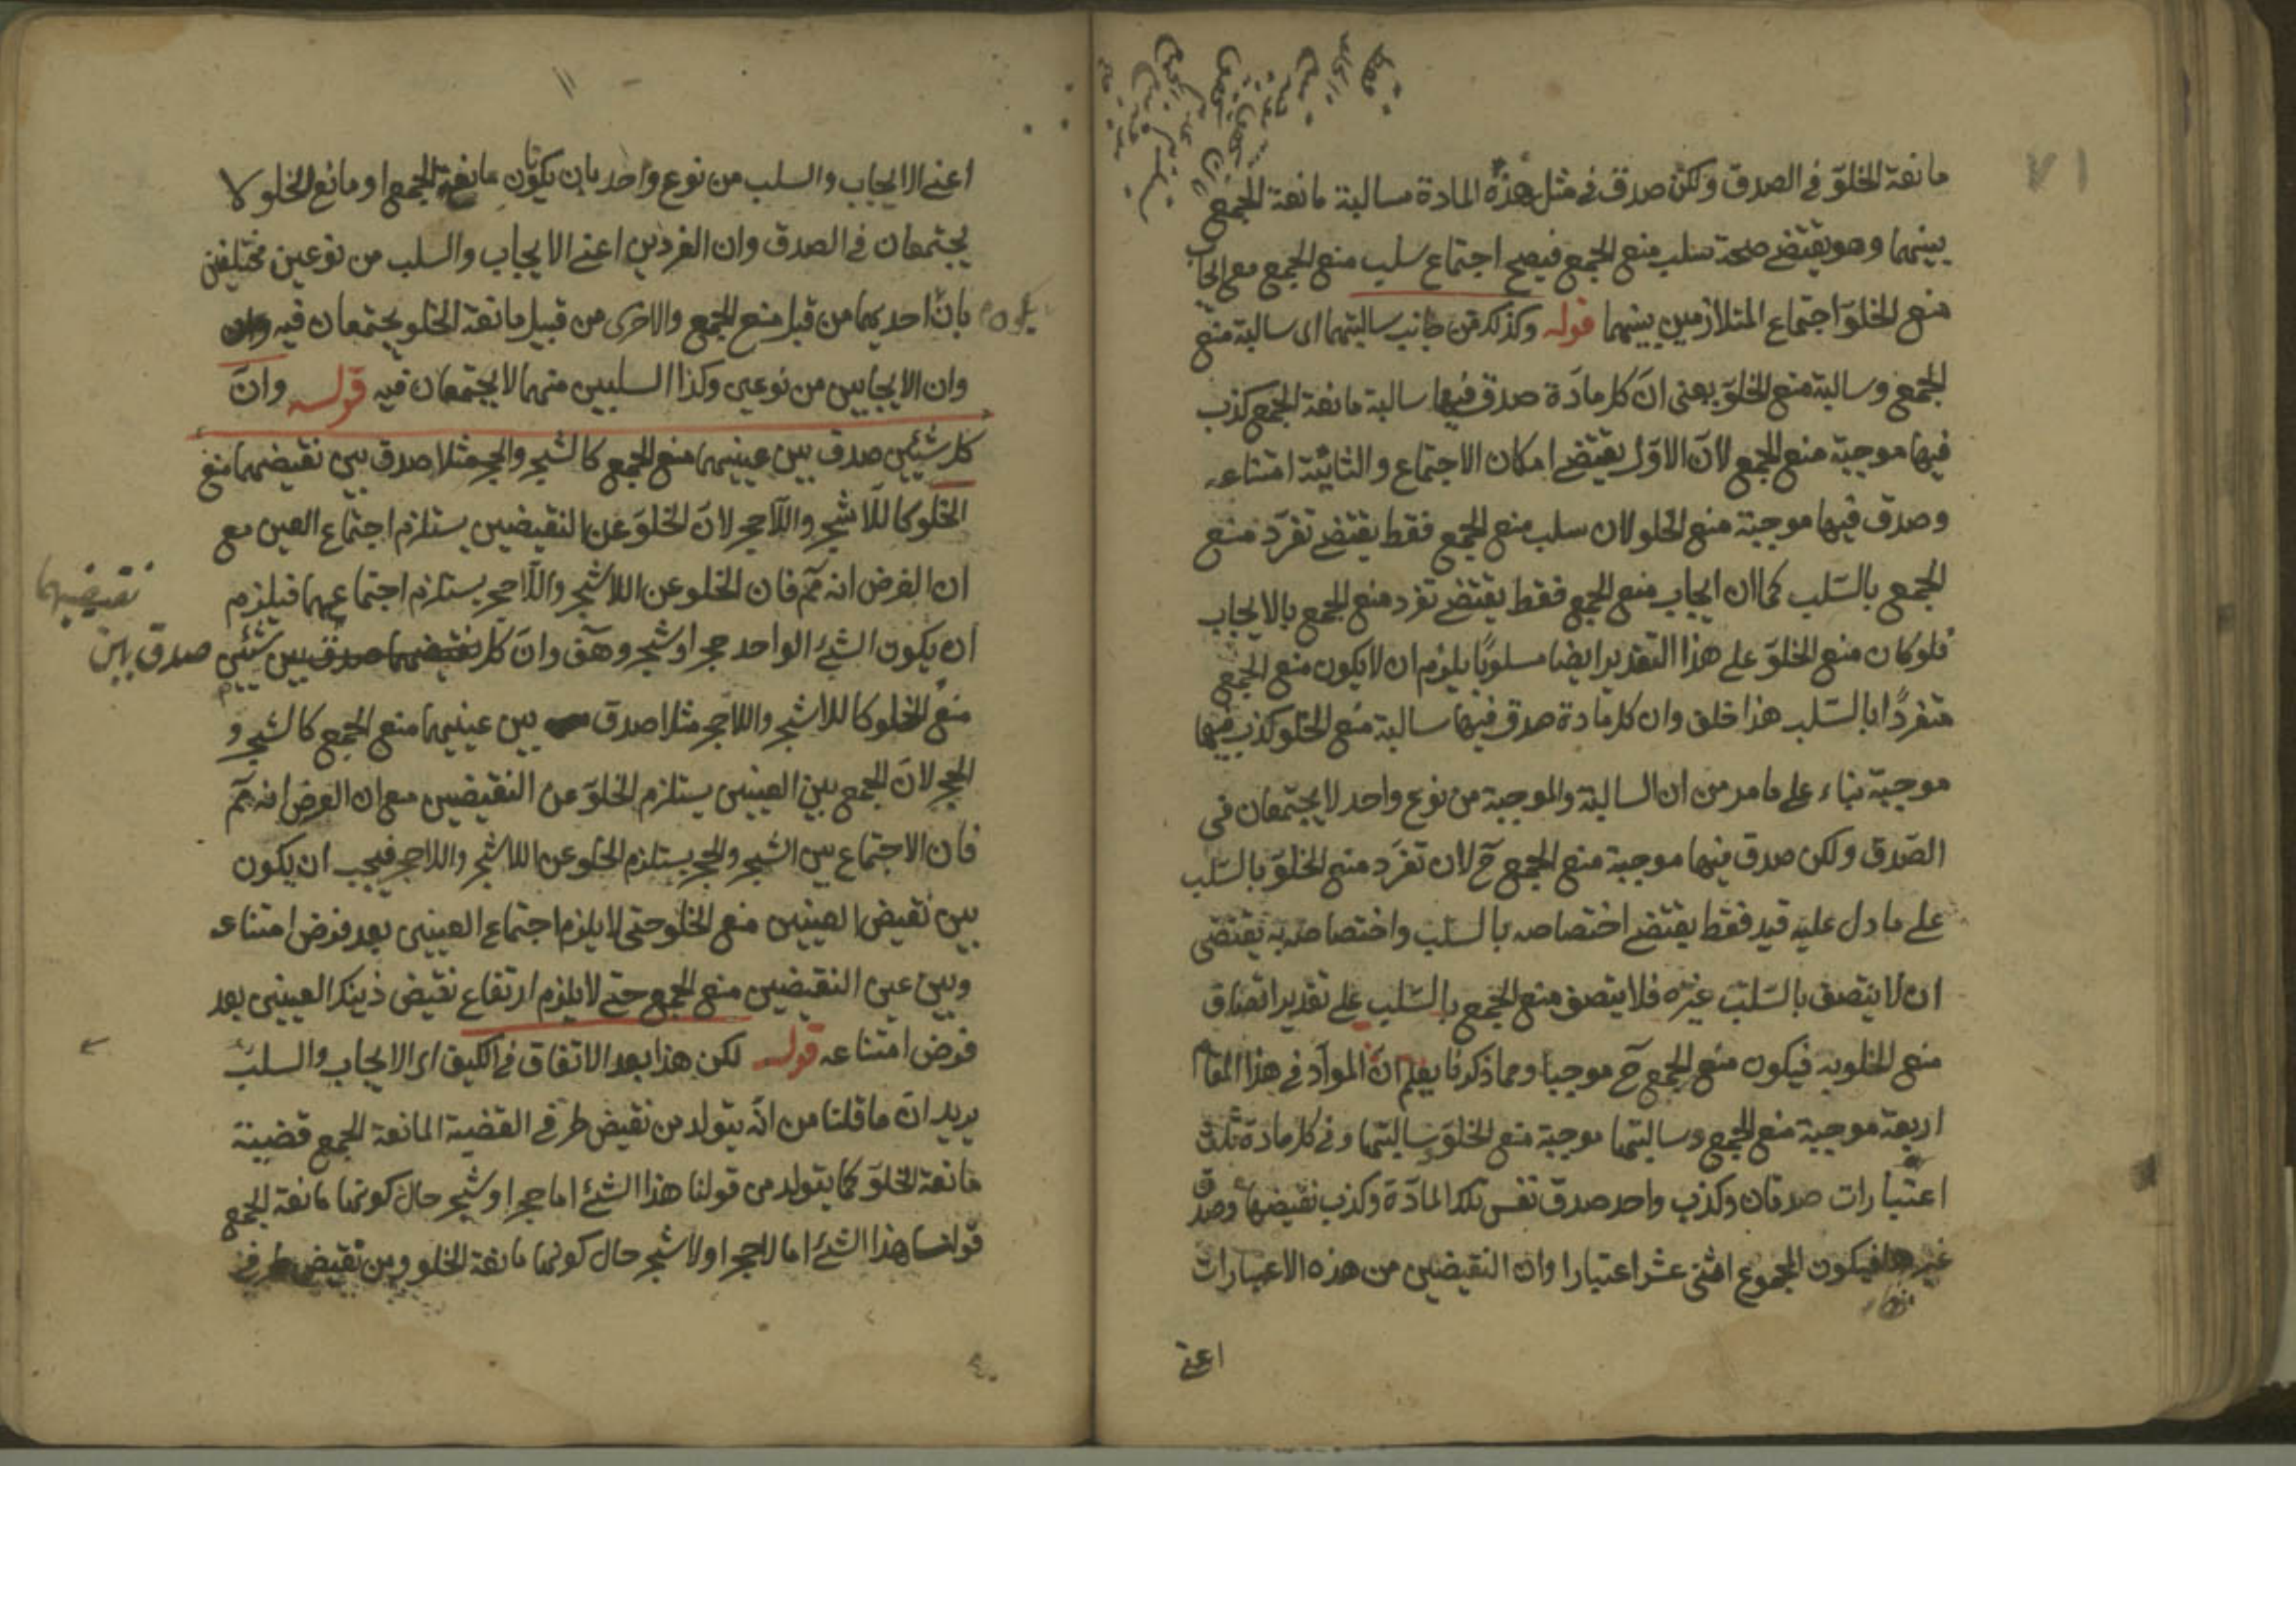 ٧١
مانعة الخلوّ في الصدق ولكن صدق في مثل هذه المادة سالبة مانعة الجمع
بينهما وهو يقتضے صحة سلب منع الجمع فيصح اجتماع سلب منع الجمع مع ايجاب
منع الخلوّ اجتماع المتلازمين بينهما قوله وكذلك من جانب سالبتهما اى سالبة منع
الجمع وسالبة منع الخلوّ يعنى انّ كل مادّة صدق فيها سالبة مانعة الجمع كذب
فيها موجبة منع الجمع لانّ الاوّل يقتضے امكان الاجتماع والثانية امتناعه
وصدق فيها موجبة منع الخلو لان سلب منع الجمع فقط يقتضے تفرّد منع
الجمع بالسّلب كما ان ايجاب منع الجمع فقط يقتضے تفرد منع الجمع بالايجاب
فلو كان منع الخلوّ على هذا التقدير ايضا مسلوبًا يلزم ان لا يكون منع الجمع
متفردًا بالسّلب هذا خلف وان كل مادة صدق فيها سالبة منع الخلو كذب فيها
موجبة بناء على ما مر من ان السالبة والموجبة من نوع واحد لا يجتمعان فى
الصّدق ولكن صدق فيها موجبة منع الجمع ح لان تفرّد منع الخلوّ بالسّلب
على ما دل عليه قيد فقط يقتضے اختصاصه بالسّلب واختصاصه به يقتضى
ان لا يتصف بالسّلب غيره فلا يتصف منع الجمع بالسّلب على تقدير اتصاف
منع الخلو به فيكون منع الجمع ح موجبا ومما ذكرنا يعلم انّ الموادّ في هذا المقام
اربعة موجبة منع الجمع وسالبتها موجبة منع الخلوّ وسالبتها وفي كل مادة ثلث
اعتبارات صدقان وكذب واحد صدق نفس تلك المادّة وكذب نقيضها وصدق
غيرها فيكون المجموع اثنى عشر اعتبارا وان النقيضين من هذه الاعتبارات
اعنے
اعنے الايجاب والسلب من نوع واحد بان يكونا مانعة الجمع او مانع الخلو لا
يجتمعان في الصدق وان الفردين اعنے الايجاب والسلب من نوعين مختلفين
بان احديهما من قبل منع الجمع والاخرى من قبيل مانعة الخلو يجتمعان فيه
يكون
وان الايجابين من نوعين وكذا السلبين منهما لا يجتمعان فيه قوله وانّ
كل شيئين صدق بين عينيهما منع الجمع كالشجر والحجر مثلا صدق بين نقيضهما منع
الخلو كاللّاشجر واللّاحجر لانّ الخلوّ عن النقيضين يستلزم اجتماع العين مع
ان الفرض انه مم فان الخلو عن اللاشجر واللّاحجر يستلزم اجتماعهما فيلزم
نقيضيهما
ان يكون الشئ الواحد حجرا وشجرا وهف وانّ كل نقيضهما صدق بين شيئين صدق بين
منع الخلو كاللاشجر واللاحجر مثلا صدق بين عينيهما منع الجمع كالشجر و
الحجر لانّ الجمع بين العينين يستلزم الخلوّ عن النقيضين مع ان الفرض انه مم
فان الاجتماع بين الشجر والحجر يستلزم الخلو عن اللاشجر واللاحجر فيجب ان يكون
بين نقيض العينين منع الخلو حتى لا يلزم اجتماع العينين بعد فرض امتناعه
وبين عين النقيضين منع الجمع حتے لا يلزم ارتفاع نقيض ذينك العينين بعد
فرض امتناعه قوله لكن هذا بعد الاتفاق في الكيف اى الايجاب والسلب
يريد انّ ما قلنا من انّه يتولد من نقيض طرفے القضية المانعة الجمع قضية
مانعة الخلوّ كما يتولد من قولنا هذا الشئ اما حجر او شجر حال كونها مانعة الجمع
قولنا هذا الشئ اما لاحجر او لاشجر حال كونها مانعة الخلو ومن نقيض طرفے